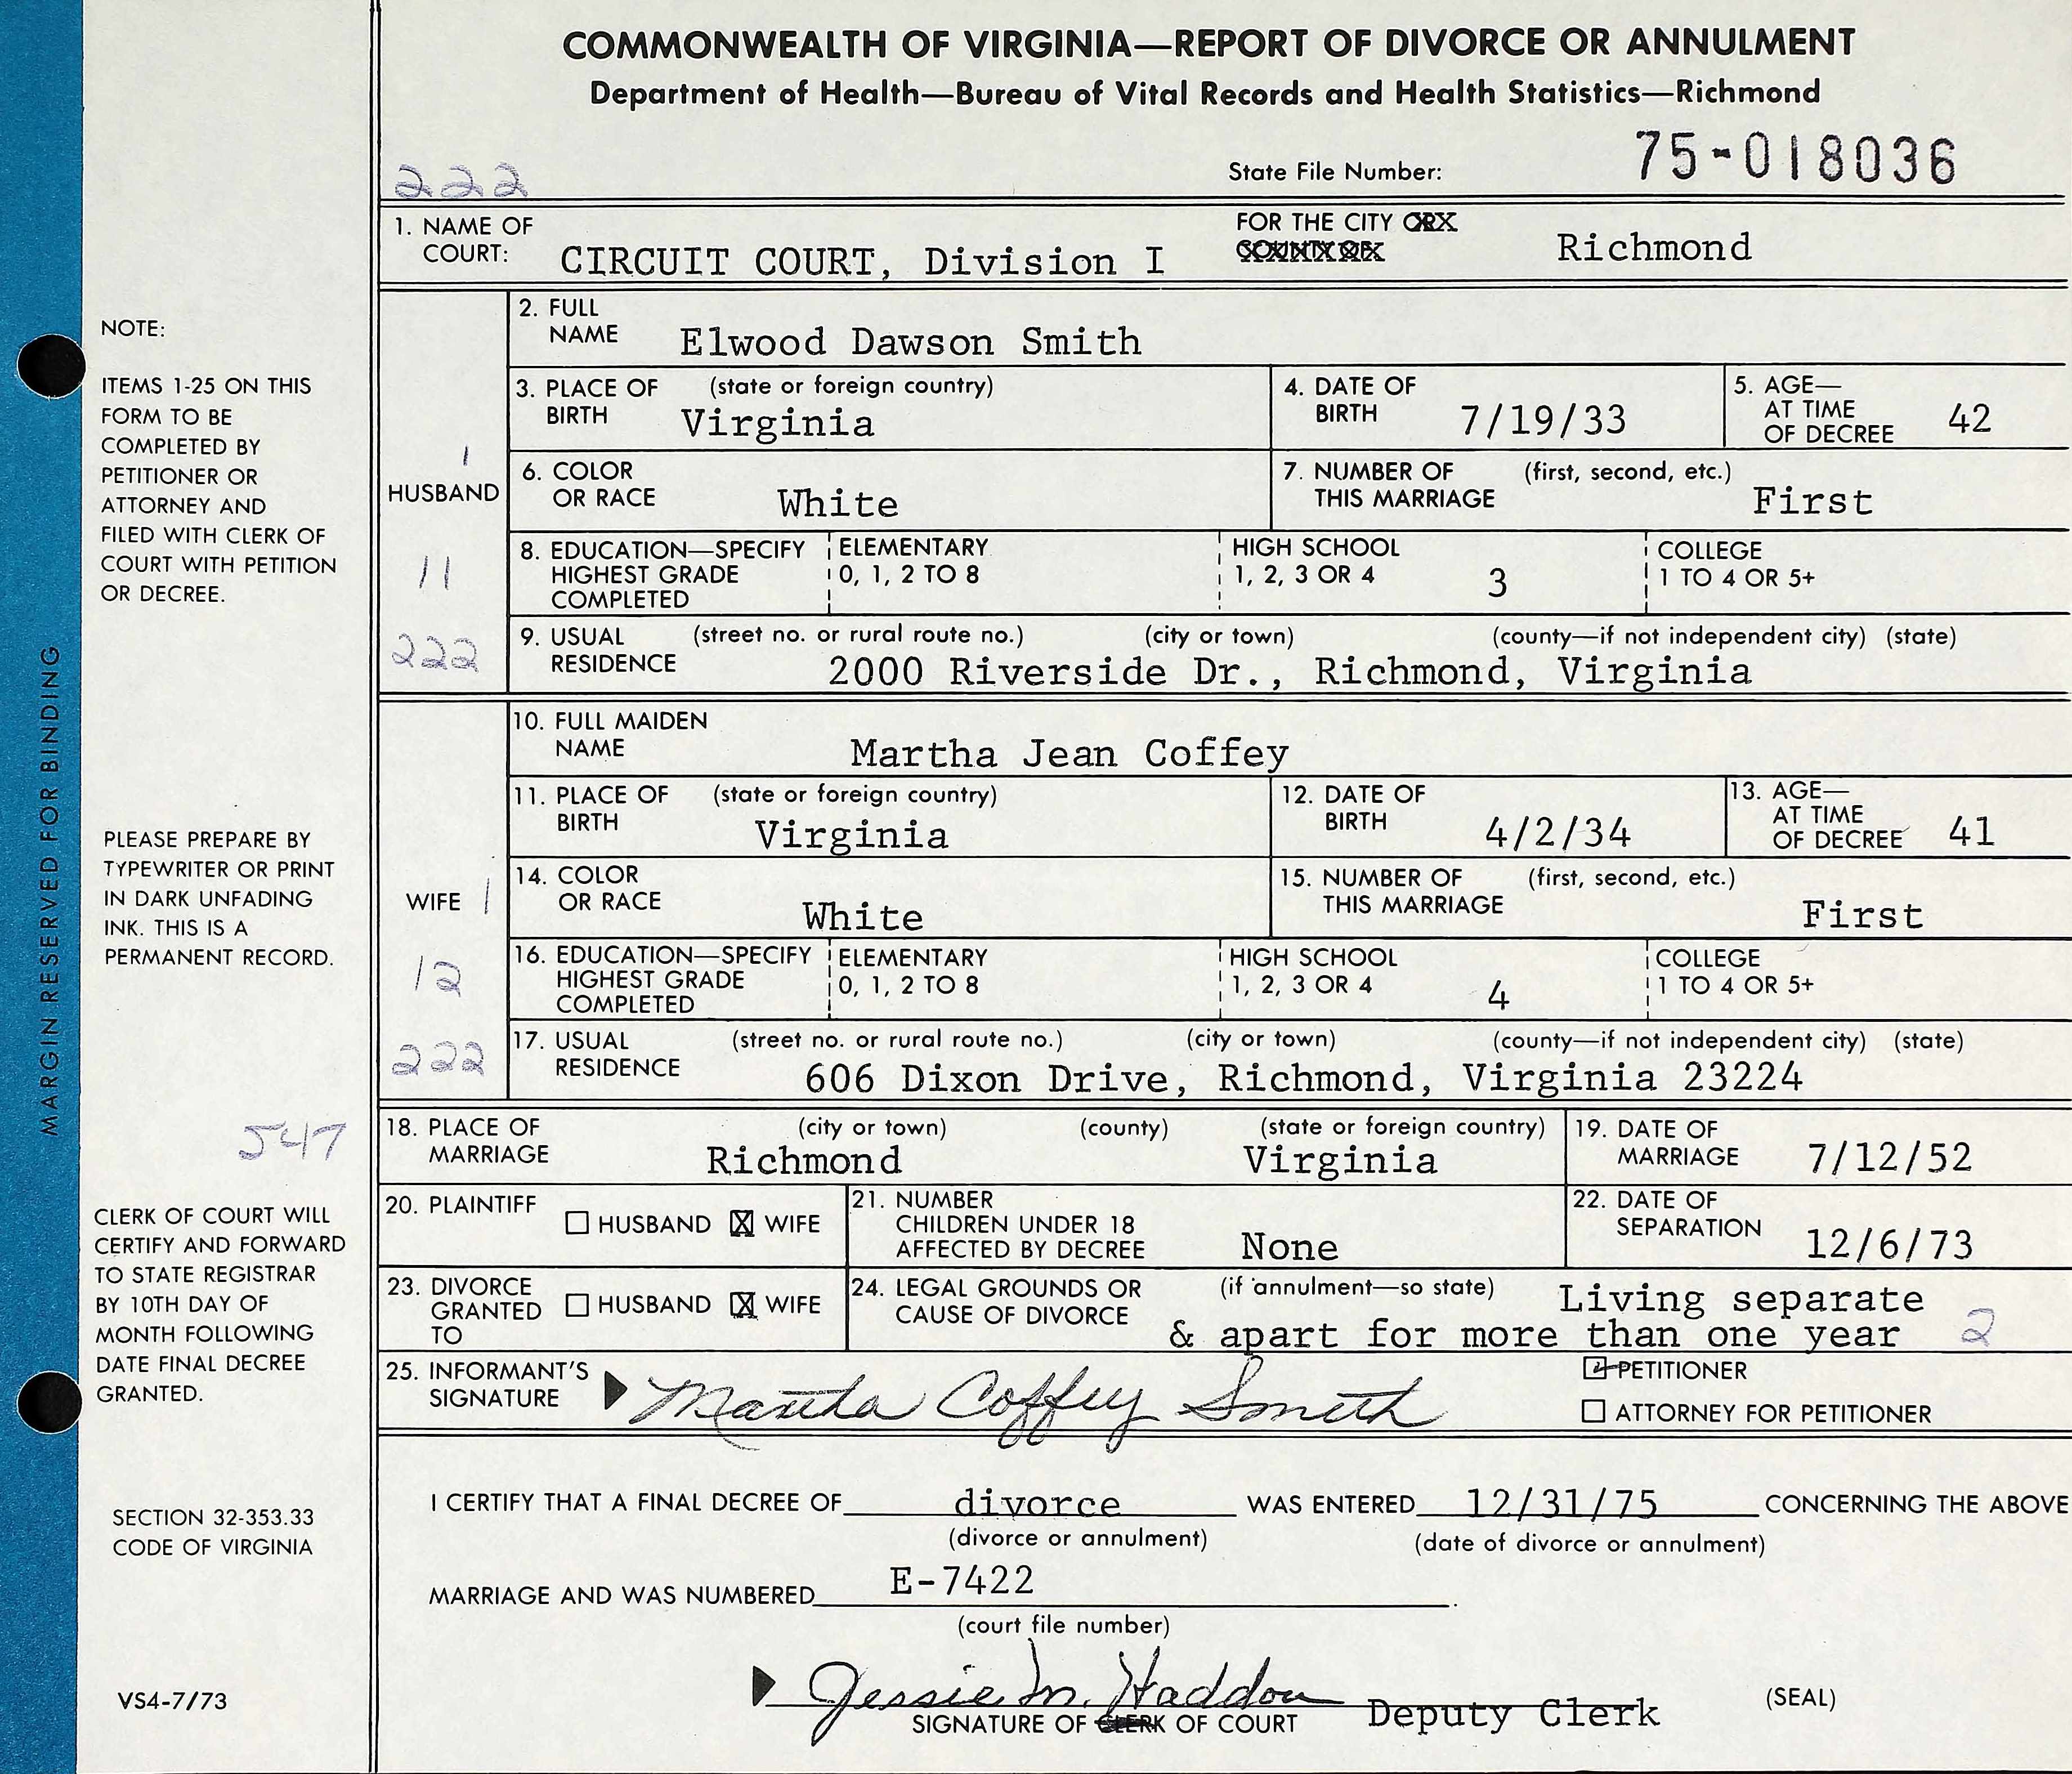 COMMONWEALTH OF VIRGINIA—REPORT OF DIVORCE OR ANNULMENT
Department of Health—Bureau of Vital Records and Health Statistics—Richmond
222
State File Number: 75-018036
1. NAME OF COURT: CIRCUIT COURT, Division I FOR THE CITY Richmond
HUSBAND
1
11
222
2. FULL NAME Elwood Dawson Smith
3. PLACE OF BIRTH (state or foreign country) Virginia
4. DATE OF BIRTH 7/19/33
5. AGE—AT TIME OF DECREE 42
6. COLOR OR RACE White
7. NUMBER OF THIS MARRIAGE (first, second, etc.) First
8. EDUCATION—SPECIFY HIGHEST GRADE COMPLETED
ELEMENTARY 0, 1, 2 TO 8
HIGH SCHOOL 1, 2, 3 OR 4 3
COLLEGE 1 TO 4 OR 5+
9. USUAL RESIDENCE (street no. or rural route no.) (city or town) (county—if not independent city) (state)
2000 Riverside Dr., Richmond, Virginia
WIFE
1
12
222
10. FULL MAIDEN NAME Martha Jean Coffey
11. PLACE OF BIRTH (state or foreign country) Virginia
12. DATE OF BIRTH 4/2/34
13. AGE—AT TIME OF DECREE 41
14. COLOR OR RACE White
15. NUMBER OF THIS MARRIAGE (first, second, etc.) First
16. EDUCATION—SPECIFY HIGHEST GRADE COMPLETED
ELEMENTARY 0, 1, 2 TO 8
HIGH SCHOOL 1, 2, 3 OR 4 4
COLLEGE 1 TO 4 OR 5+
17. USUAL RESIDENCE (street no. or rural route no.) (city or town) (county—if not independent city) (state)
606 Dixon Drive, Richmond, Virginia 23224
18. PLACE OF MARRIAGE (city or town) (county) (state or foreign country)
Richmond Virginia
19. DATE OF MARRIAGE 7/12/52
20. PLAINTIFF HUSBAND X WIFE
21. NUMBER CHILDREN UNDER 18 AFFECTED BY DECREE None
22. DATE OF SEPARATION 12/6/73
23. DIVORCE GRANTED TO HUSBAND X WIFE
24. LEGAL GROUNDS OR CAUSE OF DIVORCE (if annulment—so state) Living separate
& apart for more than one year 2
25. INFORMANT'S SIGNATURE Martha Coffey Smith
PETITIONER
ATTORNEY FOR PETITIONER
I CERTIFY THAT A FINAL DECREE OF divorce WAS ENTERED 12/31/75 CONCERNING THE ABOVE
(divorce or annulment) (date of divorce or annulment)
MARRIAGE AND WAS NUMBERED E-7422.
(court file number)
Jessie M. Haddon
SIGNATURE OF CLERK OF COURT Deputy Clerk
(SEAL)
MARGIN RESERVED FOR BINDING
NOTE:
ITEMS 1-25 ON THIS
FORM TO BE
COMPLETED BY
PETITIONER OR
ATTORNEY AND
FILED WITH CLERK OF
COURT WITH PETITION
OR DECREE.
PLEASE PREPARE BY
TYPEWRITER OR PRINT
IN DARK UNFADING
INK. THIS IS A
PERMANENT RECORD.
547
CLERK OF COURT WILL
CERTIFY AND FORWARD
TO STATE REGISTRAR
BY 10TH DAY OF
MONTH FOLLOWING
DATE FINAL DECREE
GRANTED.
SECTION 32-353.33
CODE OF VIRGINIA
VS4-7/73